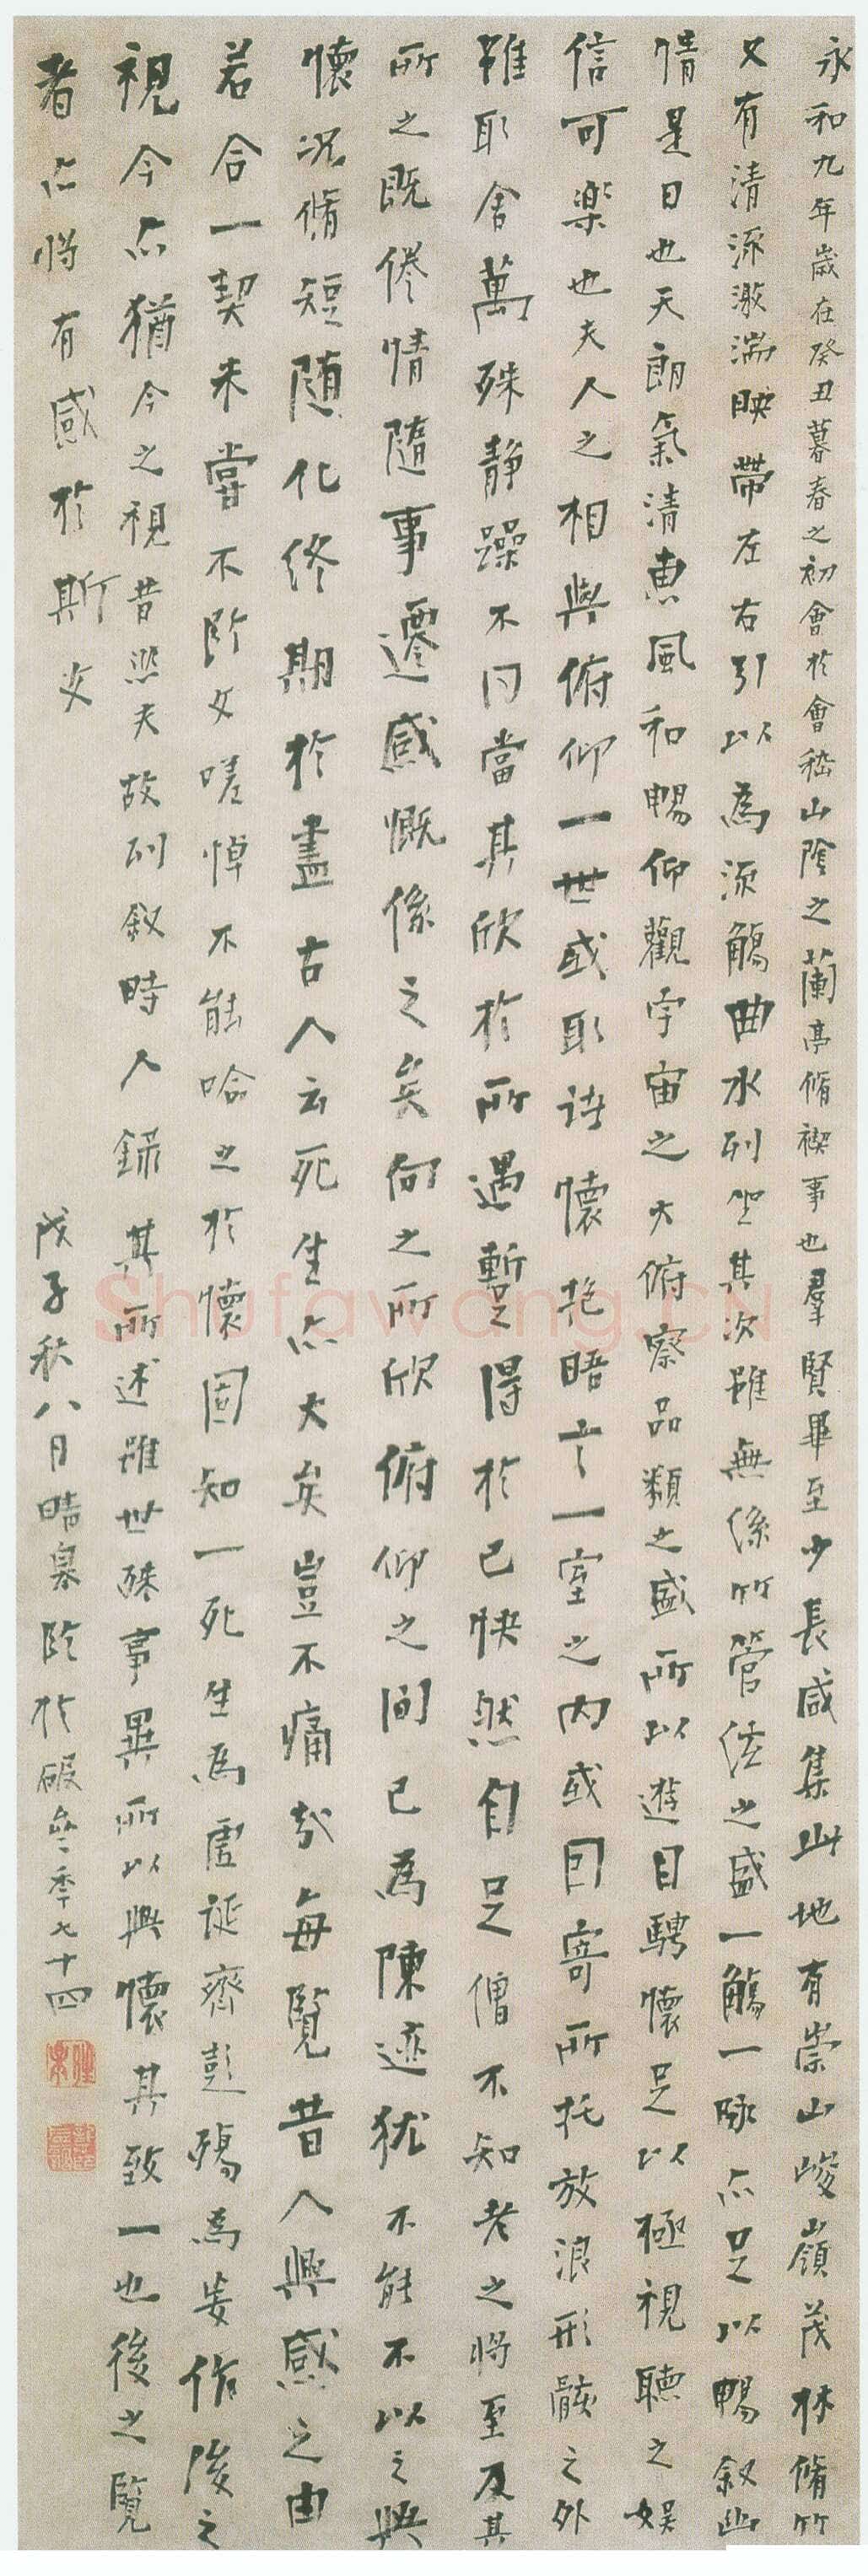 永和九年歲在癸丑暮春之初會於會嵇山陰之蘭亭脩禊事也羣賢畢至少長咸集此地有崇山峻嶺茂林脩竹
又有清流激湍映帶左右引以為流觴曲水列坐其次雖無絲竹管絃之盛一觴一詠亦足以暢敘幽
情是日也天朗氣清惠風和暢仰觀宇宙之大俯察品類之盛所以遊目騁懷足以極視聽之娛
信可樂也夫人之相與俯仰一世或取諸懷抱晤言一室之內或因寄所托放浪形骸之外
雖取舍萬殊靜躁不同當其欣於所遇暫得於己快然自足僧不知老之將至及其
所之既倦情隨事遷感慨係之矣向之所欣俯仰之間已為陳迹猶不能不以之興
懷況脩短隨化終期於盡古人云死生亦大矣豈不痛哉每覽昔人興感之由
若合一契未嘗不臨文嗟悼不能喻之於懷固知一死生為虛誕齊彭殤為妄作後之
視今亦猶今之視昔悲夫故列敘時人錄其所述雖世殊事異所以興懷其致一也後之覽
者亦將有感於斯文
戊子秋八月晴皋臨於硯 年七十四
Shufawang.cn